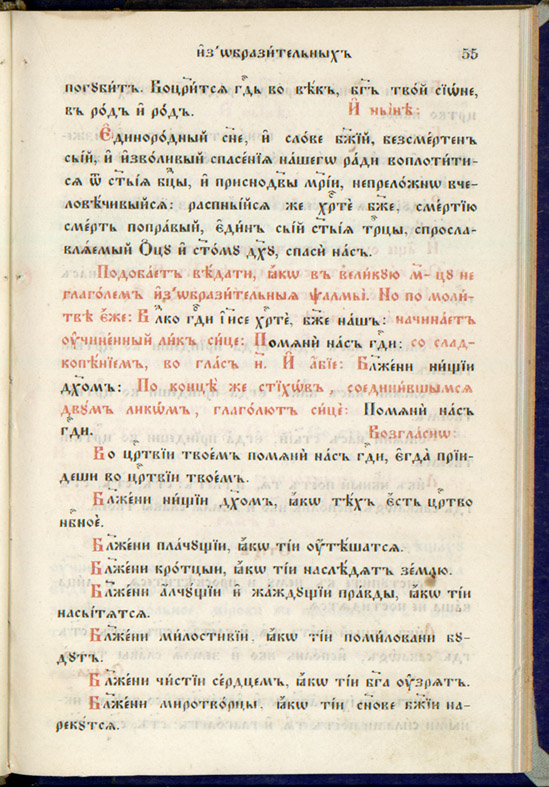 и҆з̾ѡбрази́тельныхъ 55
погꙋби́тъ. Воцр҃и́тсѧ гдⷭ҇ь во вѣ́къ, бг҃ъ тво́й сїѡ́не,
въ ро́дъ и҆ ро́дъ. И҆ ны́нѣ:
Є҆диноро́дный сн҃е, и҆ сло́ве бж҃їй, безсме́ртенъ
сы́й, и҆ изво́ливый спасе́нїѧ на́шегѡ ра́ди воплоти́ти-
сѧ ѿ ст҃ы́ѧ бц҃ы, и҆ приснодв҃ы мр҃і́и, непрело́жнѡ вче-
ловѣ́чивыйсѧ: распны́йсѧ же хрⷭ҇тѐ бж҃е, сме́ртїю
сме́рть попра́вый, є҆ди́нъ сы́й ст҃ы́ѧ трⷪ҇цы, спросла-
влѧ́емый Ѻ҆ц҃ꙋ̀ и҆ ст҃о́мꙋ дх҃ꙋ, спасѝ на́съ.
Подоба́етъ вѣ́дати, ꙗ҆́кѡ въ вели́кꙋю м҃-цꙋ не
глаго́лемъ и҆з̾ѡбрази́тельныѧ ѱалмы̀. Но по моли́-
твѣ є҆́же: Влⷣко гдⷭ҇и і҆и҃се хрⷭ҇тѐ, бж҃е на́шъ: начина́етъ
ᲂу҆чине́нный ли́къ си́це: Помѧнѝ на́съ гдⷭ҇и: со слад-
копѣ́нїемъ, во гла́съ и҃. И҆ а҆́бїе: Бл҃же́ни ни́щїи
дх҃омъ: По концѣ́ же стїхѡ́въ, соедини́вшымсѧ
двꙋ́мъ ли́кѡмъ, глаго́лютъ си́це: Помѧнѝ на́съ
гдⷭ҇и. Возгла́снѡ:
Во црⷭ҇твїи твое́мъ помѧнѝ на́съ гдⷭ҇и, є҆гда̀ прїи́и-
деши во црⷭ҇твїи твое́мъ.
Бл҃же́ни ни́щїи дх҃омъ, ꙗ҆́кѡ тѣ́хъ є҆́сть црⷭ҇тво
нбⷭ҇ное.
Бл҃же́ни пла́чꙋщїи, ꙗ҆́кѡ ті́и ᲂу҆тѣ́шатсѧ.
Бл҃же́ни кро́тцыи, ꙗ҆́кѡ ті́и наслѣ́дѧтъ зе́млю.
Бл҃же́ни а҆́лчꙋщїи и҆ жа́ждꙋщїи пра́вды, ꙗ҆́кѡ ті́и
насы́тѧтсѧ.
Бл҃же́ни ми́лостивїи, ꙗ҆́кѡ ті́и поми́ловани бꙋ́-
дꙋтъ.
Бл҃же́ни чи́стїи се́рдцемъ, ꙗ҆́кѡ ті́и бг҃а ᲂу҆́зрѧтъ.
Бл҃же́ни миротво́рцы, ꙗ҆́кѡ ті́и сн҃ове бж҃їи на-
рекꙋ́тсѧ.